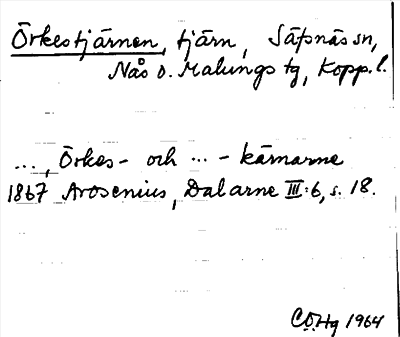 Örkestjärnen, tjärn, Säfsnäs sn,
Nås o. Malungs tg, Kopp. l.
..., Örkes- och ... - kärnarne
1867 Arosenius, Dalarne III:6, s. 18.
CÖHg 1964